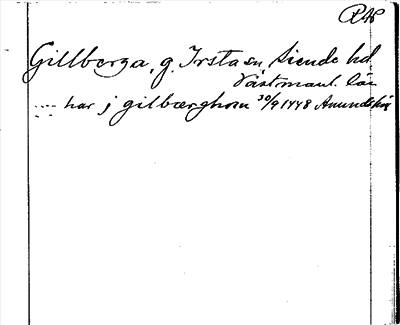 RAP
Gillberga, g. Irsta sn, Siende hd
Västmanl. län
har j gilbærghom 30/9 1448 Amundshö